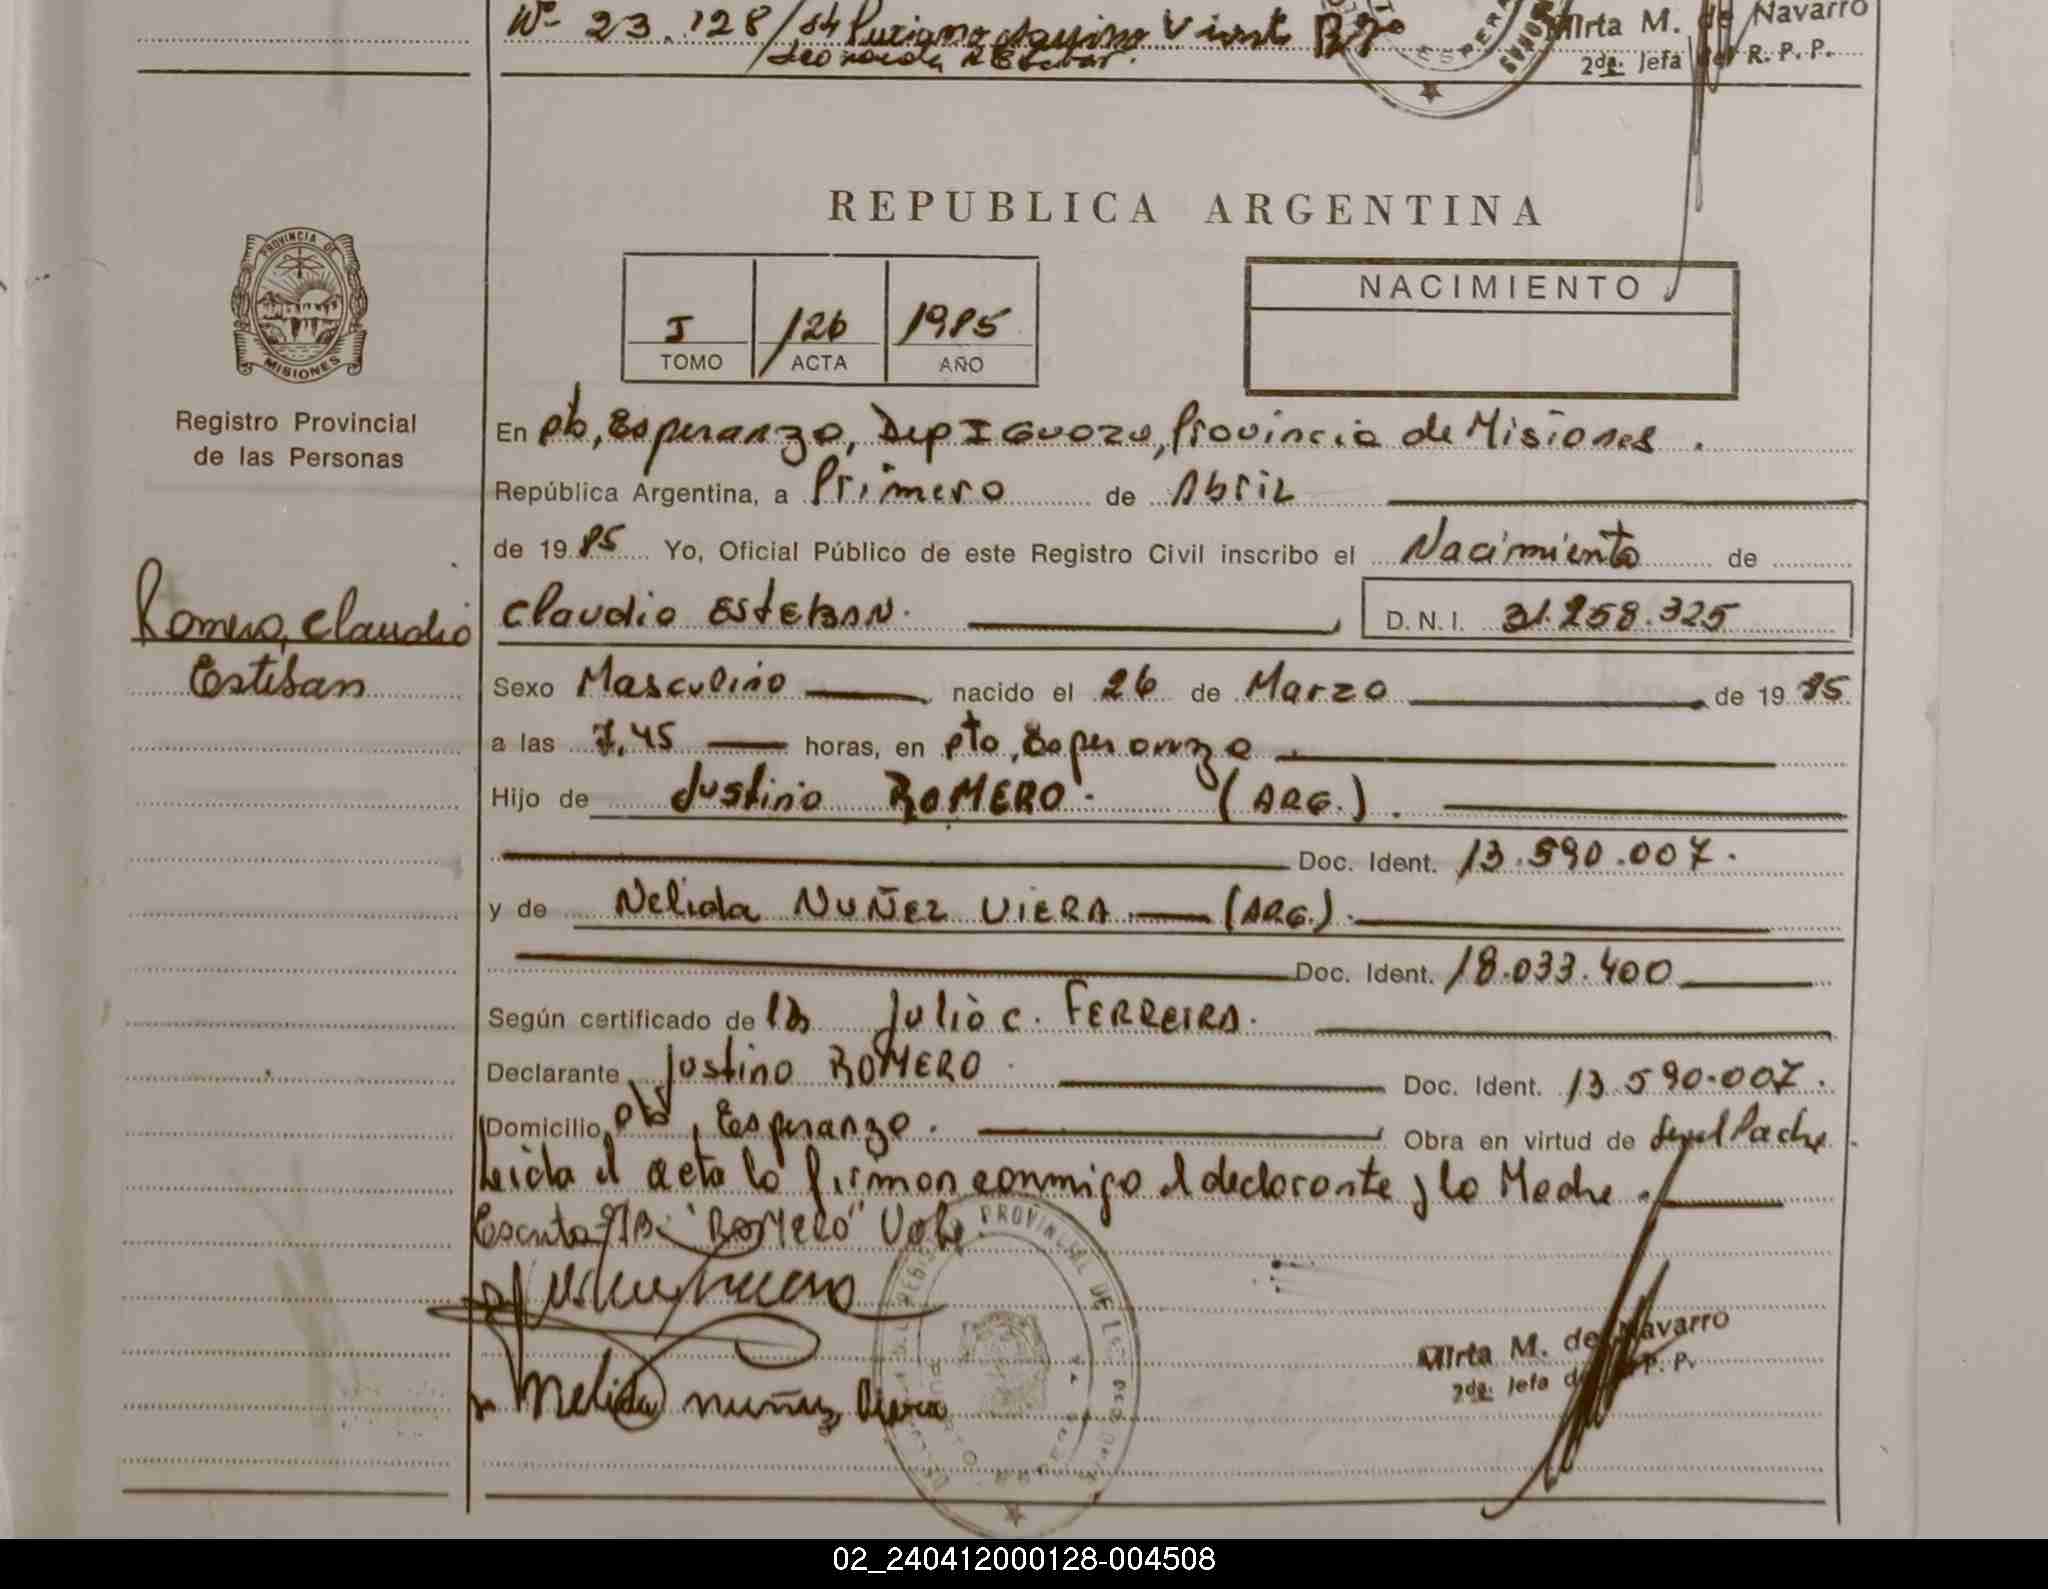 Nº 23.128/84 Luciano Aquino Vicente
Mirta M. de Navarro
2da. Jefa del R. P. P.
REPUBLICA ARGENTINA
PROVINCIA DE
MISIONES
Registro Provincial
de las Personas
I 126 1985
TOMO ACTA AÑO
NACIMIENTO
En pto, Esperanza, Dep Iguazu, Provincia de Misiones.
República Argentina, a Primero de Abril
de 1985 Yo, Oficial Público de este Registro Civil inscribo el Nacimiento de
Romero, Claudio
Esteban
Claudio ESTEBAN. D.N.I. 31.258.325
Sexo Masculino nacido el 26 de Marzo de 1985
a las 7,45 horas, en pto, Esperanza.
Hijo de Justino ROMERO. (ARG.).
Doc. Ident. 13.590.007.
y de Nelida NUÑEZ VIERA (ARG.).
Doc. Ident. 18.033.400
Según certificado de Julio c. FERREIRA.
Declarante Justino ROMERO. Doc. Ident. 13.590.007.
Domicilio pto, Esperanza. Obra en virtud de ser el Padre.
Leida el acta lo firman conmigo el declarante y la Madre.
"ROMERO" Vale.
PROVINCIAL DE
Nelida nuñez Viera
Mirta M. de Navarro
2da. Jefa del R. P. P.
02_240412000128-004508